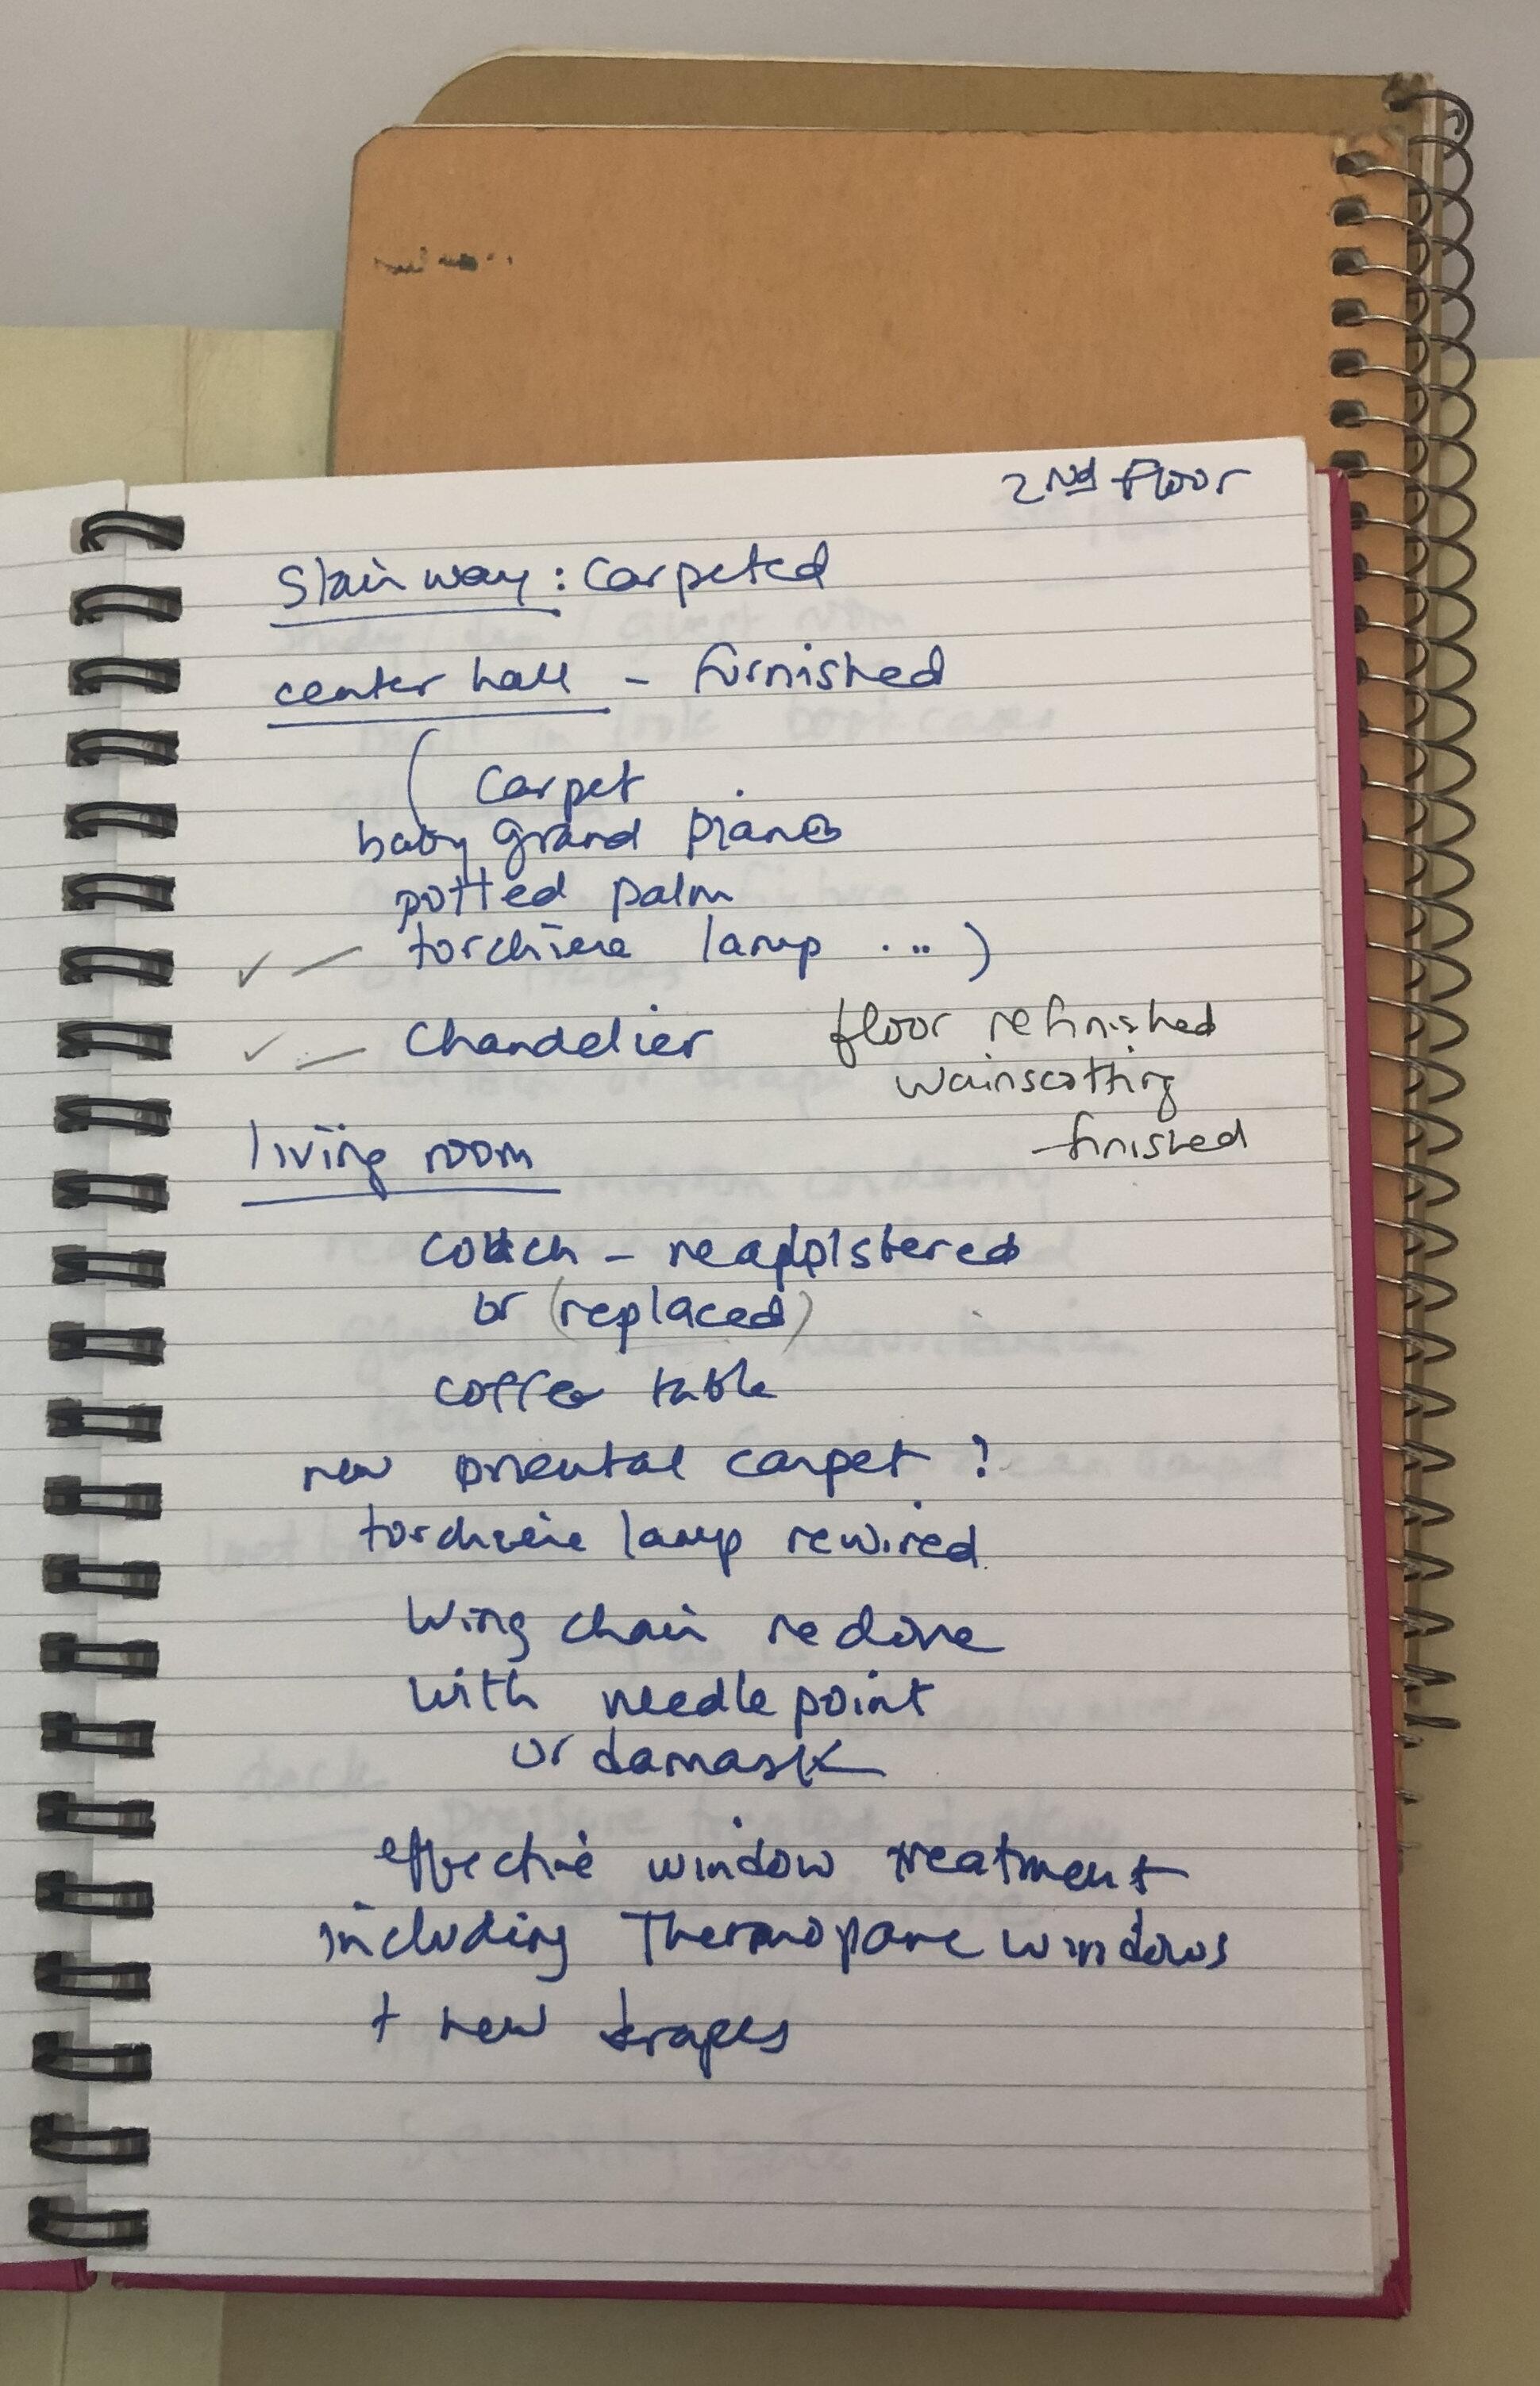 2nd floor
Stairway: Carpeted
center hall - furnished
( Carpet
baby grand piano
potted palm
✓ — torchiere lamp ...)
✓ — Chandelier floor refinished
wainscotting
finished
living room
couch - reapplstered
or (replaced)
coffee table
new oriental carpet ?
torchiere lamp rewired
Wing chair redone
with needlepoint
or damask
effective window treatment
including Thermopane windows
+ new drapes